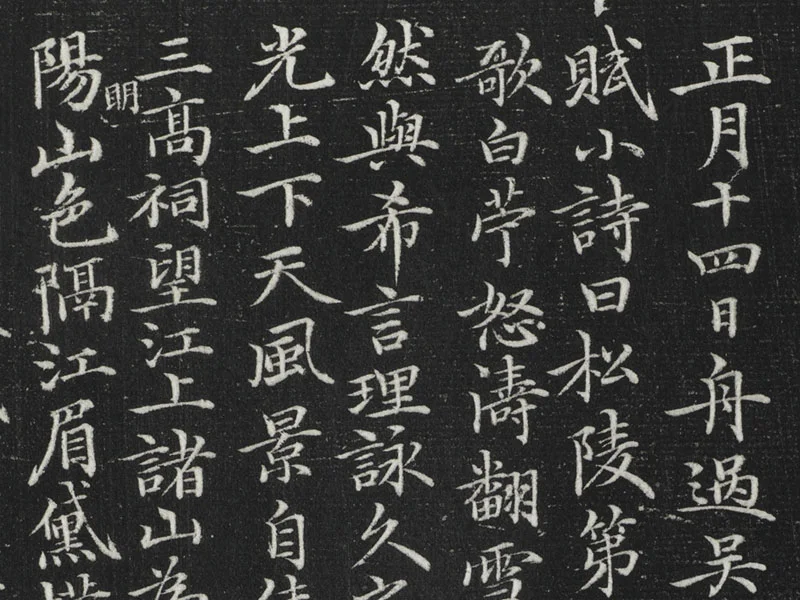 正月十四日舟過吳
賦小詩曰松陵第
歌白苧怒濤翻雪
然與希言理詠久之
光上下天風景自
三高祠望江上諸山為
明
陽山色隔江眉黛